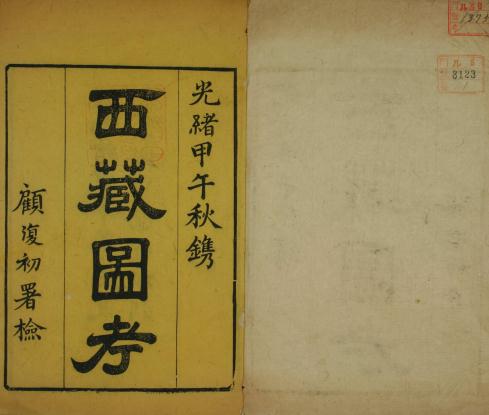 光緒甲午秋鐫
西藏圖考
顧復初署檢
ル 5
3123